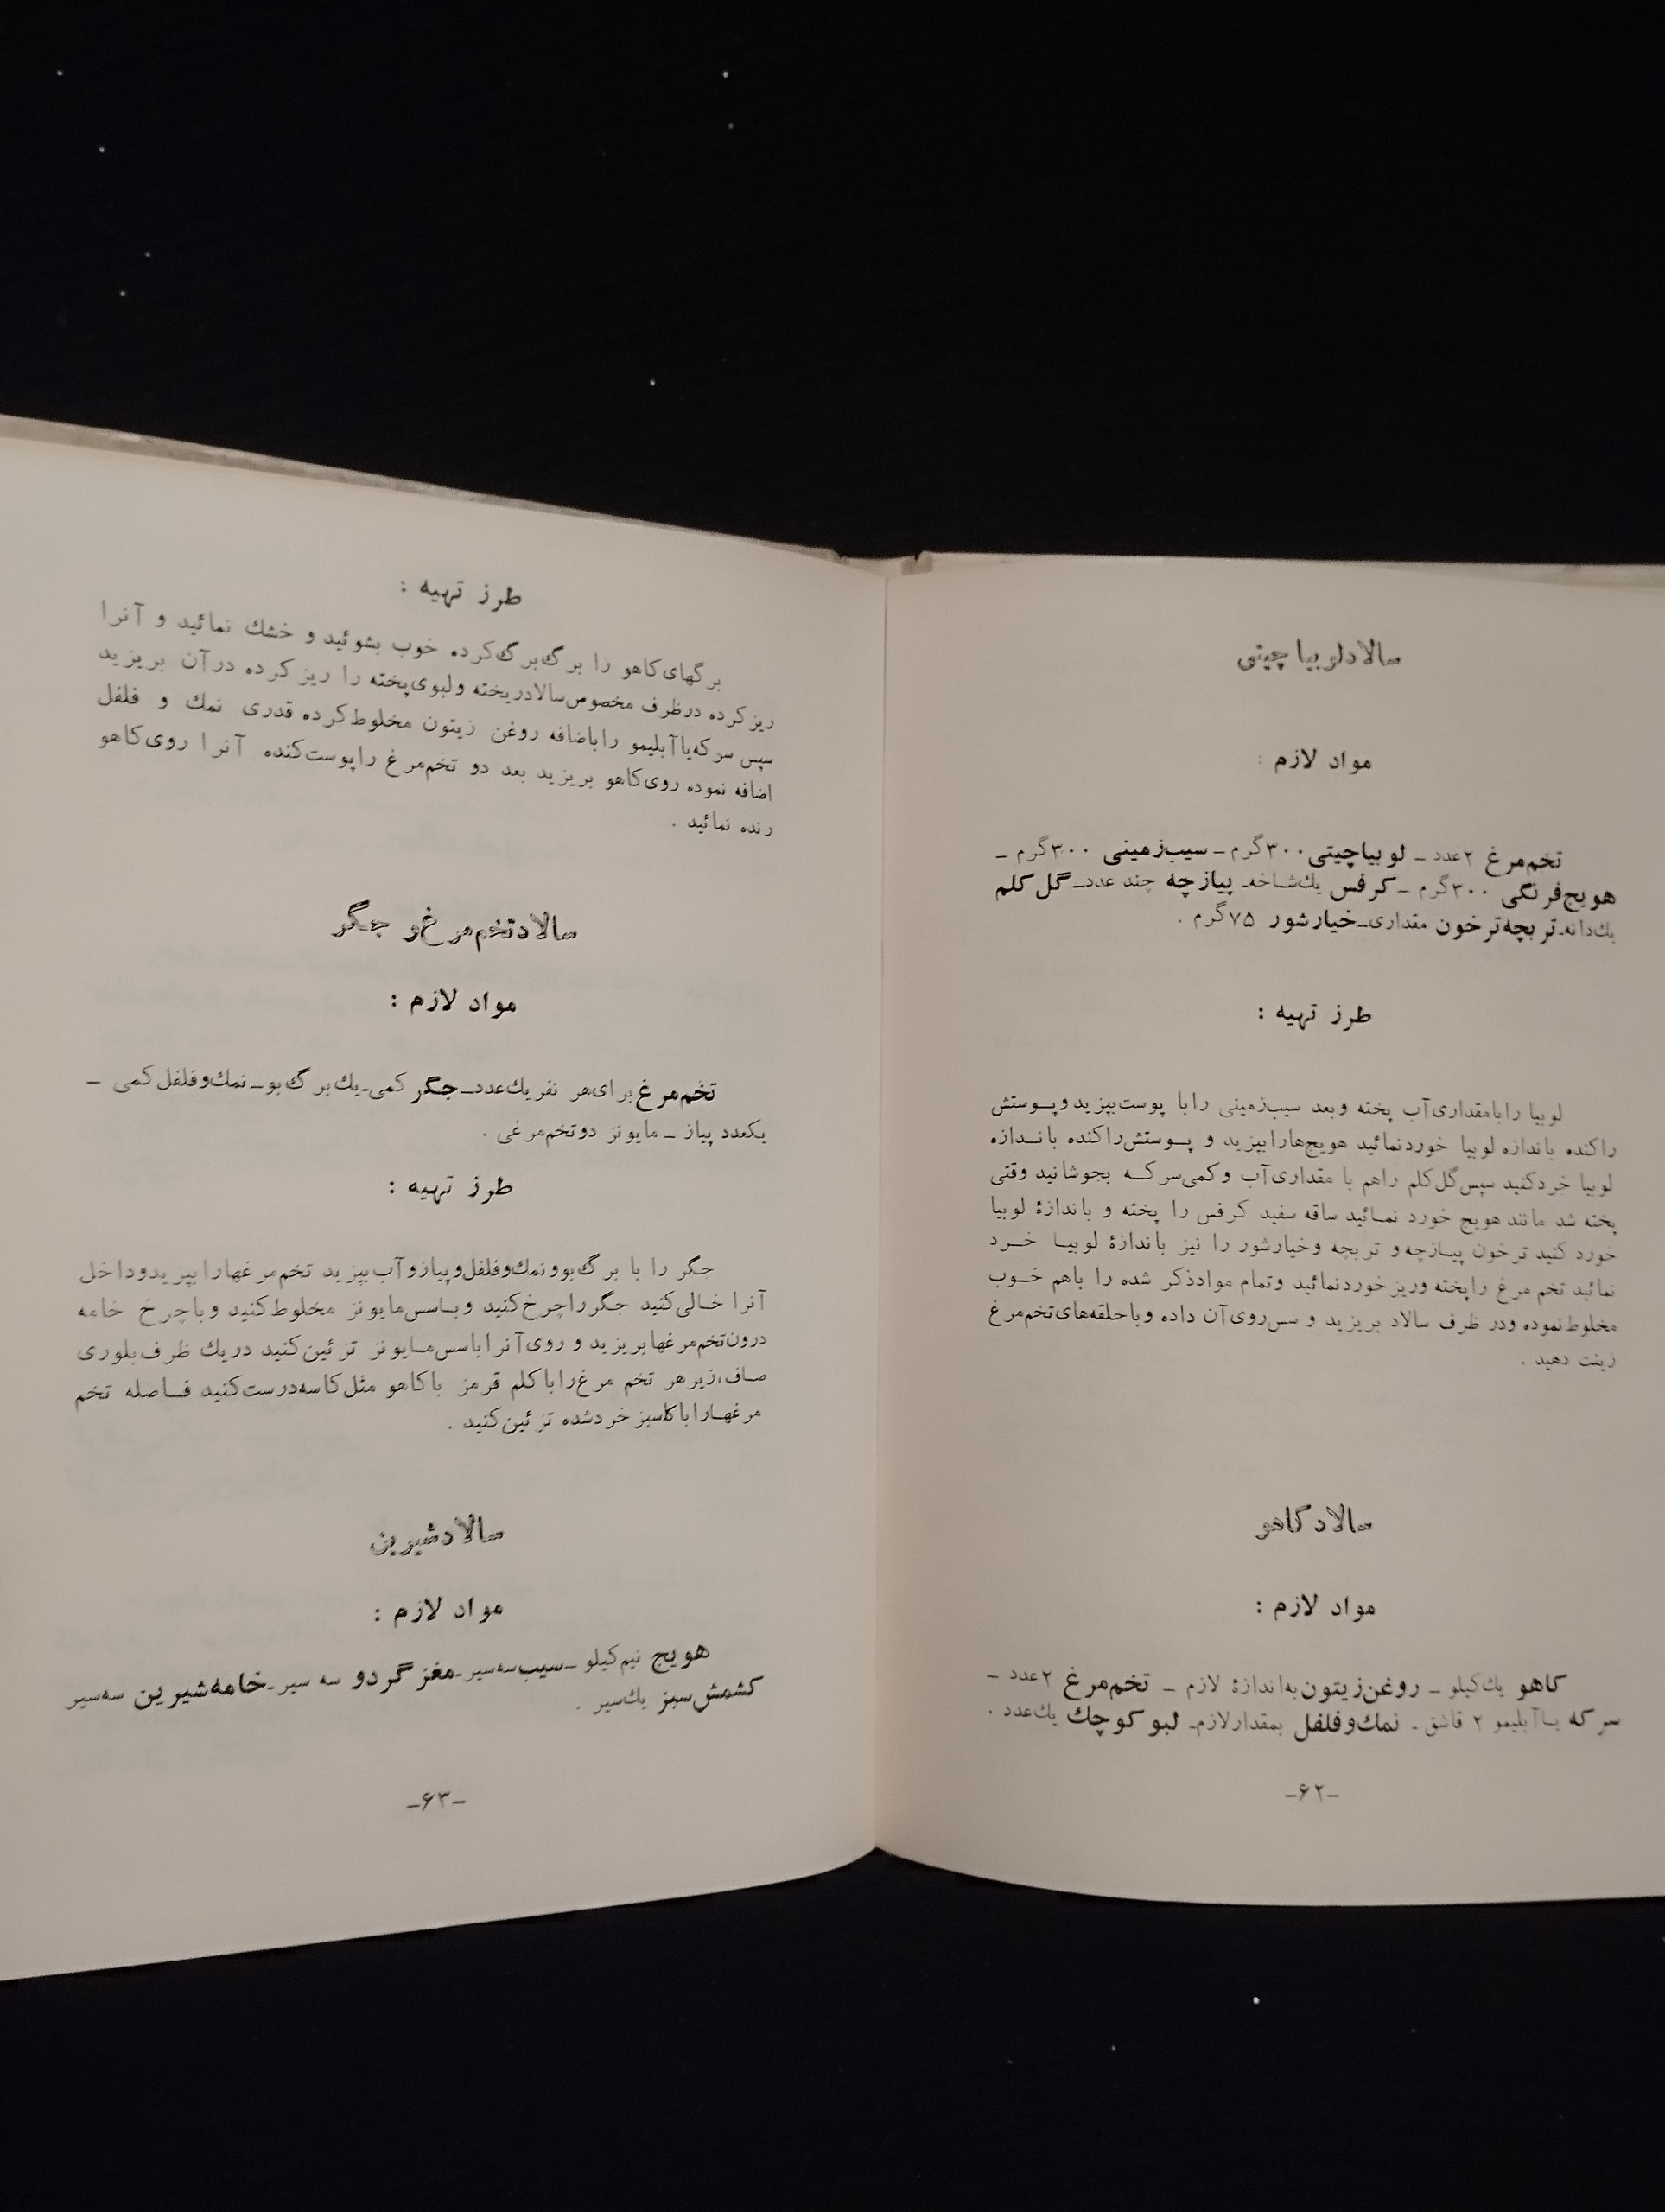 سالاد لوبیا چیتی
مواد لازم :
تخم‌مرغ ۲عدد ـ لوبیاچیتی ۳۰۰گرم ـ سیب‌زمینی ۳۰۰گرم ـ
هویج‌فرنگی ۳۰۰گرم ـ کرفس یك‌شاخه ـ پیازچه چند عدد ـ گل‌کلم
یك‌دانه ـ تربچه‌ترخون مقداری ـ خیارشور ۷۵گرم .
طرز تهیه :
لوبیا رابامقداری آب پخته وبعد سیب‌زمینی رابا پوست‌بپزید وپوستش
راکنده باندازه لوبیا خوردنمائید هویج‌هارابپزید و پوستش‌راکنده باندازه
لوبیا خردکنید سپس‌گل‌کلم راهم با مقداری‌آب وکمی‌سرکه بجوشانید وقتی
پخته شد مانند هویج خورد نمائید ساقه سفید کرفس را پخته و باندازهٔ لوبیا
خورد کنید ترخون پیازچه‌و تربچه وخیارشور را نیز باندازهٔ لوبیا خرد
نمائید تخم مرغ راپخته وریز خوردنمائید وتمام موادذکر شده را باهم خوب
مخلوط‌نموده ودر ظرف سالاد بریزید و سس‌روی‌آن داده وباحلقه‌های‌تخم‌مرغ
زینت دهید .
سالاد کاهو
مواد لازم :
کاهو یك‌کیلو ـ روغن‌زیتون به‌اندازهٔ لازم ـ تخم‌مرغ ۲عدد ـ
سرکه یاآبلیمو ۲ قاشق ـ نمك‌وفلفل بمقدارلازم ـ لبو کوچك یك‌عدد .
ـ۶۲ـ
طرز تهیه :
برگهای‌کاهو را برگ‌برگ‌کرده خوب بشوئید و خشك نمائید و آنرا
ریز‌کرده درظرف مخصوص‌سالادریخته ولبوی‌پخته را ریزکرده درآن بریزید
سپس سرکه‌یاآبلیمو راباضافه روغن زیتون مخلوط‌کرده قدری نمك و فلفل
اضافه نموده روی‌کاهو بریزید بعد دو تخم‌مرغ راپوست‌کنده آنرا روی‌کاهو
رنده نمائید .
سالاد تخم‌مرغ و جگر
مواد لازم :
تخم‌مرغ برای‌هر نفریك‌عدد ـ جگر کمی ـ یك‌برگ‌بو ـ نمك‌وفلفل‌کمی ـ
یکعدد پیاز ـ مایونز دوتخم‌مرغی .
طرز تهیه :
جگر را با برگ‌بوونمك‌وفلفل‌وپیازوآب‌بپزید تخم‌مرغهارابپزیدوداخل
آنرا خالی‌کنید جگرراچرخ‌کنید وباسس‌مایونز مخلوط‌کنید وباچرخ خامه
درون‌تخم‌مرغهابریزید و روی‌آنراباسس‌مایونز تزئین‌کنید دریك ظرف‌بلوری
صاف،زیرهر تخم مرغ‌راباکلم قرمز باکاهو مثل‌کاسه‌درست‌کنید فاصله تخم
مرغهاراباکاسبز خردشده تزئین‌کنید .
سالاد شیرین
مواد لازم :
هویج نیم‌کیلو ـ سیب‌سه‌سیر ـ مغز گردو سه سیر ـ خامه‌شیرین سه‌سیر
کشمش‌سبز یك‌سیر .
ـ۶۳ـ